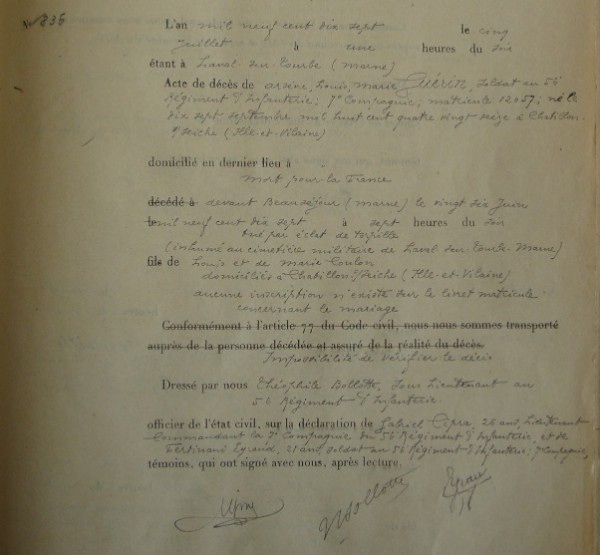 N° 236
L'an mil neuf cent dix sept le cinq
Juillet à heures du soir
étant à Laval sur Tourbe (Marne)
Acte de décès de arsène, Louis, Marie Guérin, soldat au 56
Régiment d'Infanterie; 7e Compagnie, matricule 12057; né le
dix sept septembre mil huit cent quatre vingt seize à Chatillon
s/Seiche (Ille-et-Vilaine)
domicilié en dernier lieu à
mort pour la France
décédé à devant Beauséjour (marne) le vingt six Juin
le mil neuf cent dix sept à sept heures du soir
tué par éclat de torpille
(inhumé au cimetière militaire de Laval-sur-Tourbe-Marne)
fils de Louis et de Marie Coulon
domiciliés à Chatillon s/Seiche (Ille-et-Vilaine)
aucune inscription n'existe sur le livret matricule
concernant le mariage
Conformément à l'article 77 du Code civil, nous nous sommes transporté
auprès de la personne décédée et assuré de la réalité du décès.
Impossibilité de vérifier le décès
Dressé par nous Théophile Bollotte, Sous Lieutenant au
56 Régiment d'Infanterie
officier de l'état civil, sur la déclaration de Gabriel 26 ans, Lieutenant
Commandant la 7e Compagnie du 56 Régiment d'Infanterie, et de
Ferdinand Eyraud, 21 ans, soldat au 56 Régiment d'Infanterie; 7e Compagnie,
témoins, qui ont signé avec nous, après lecture.